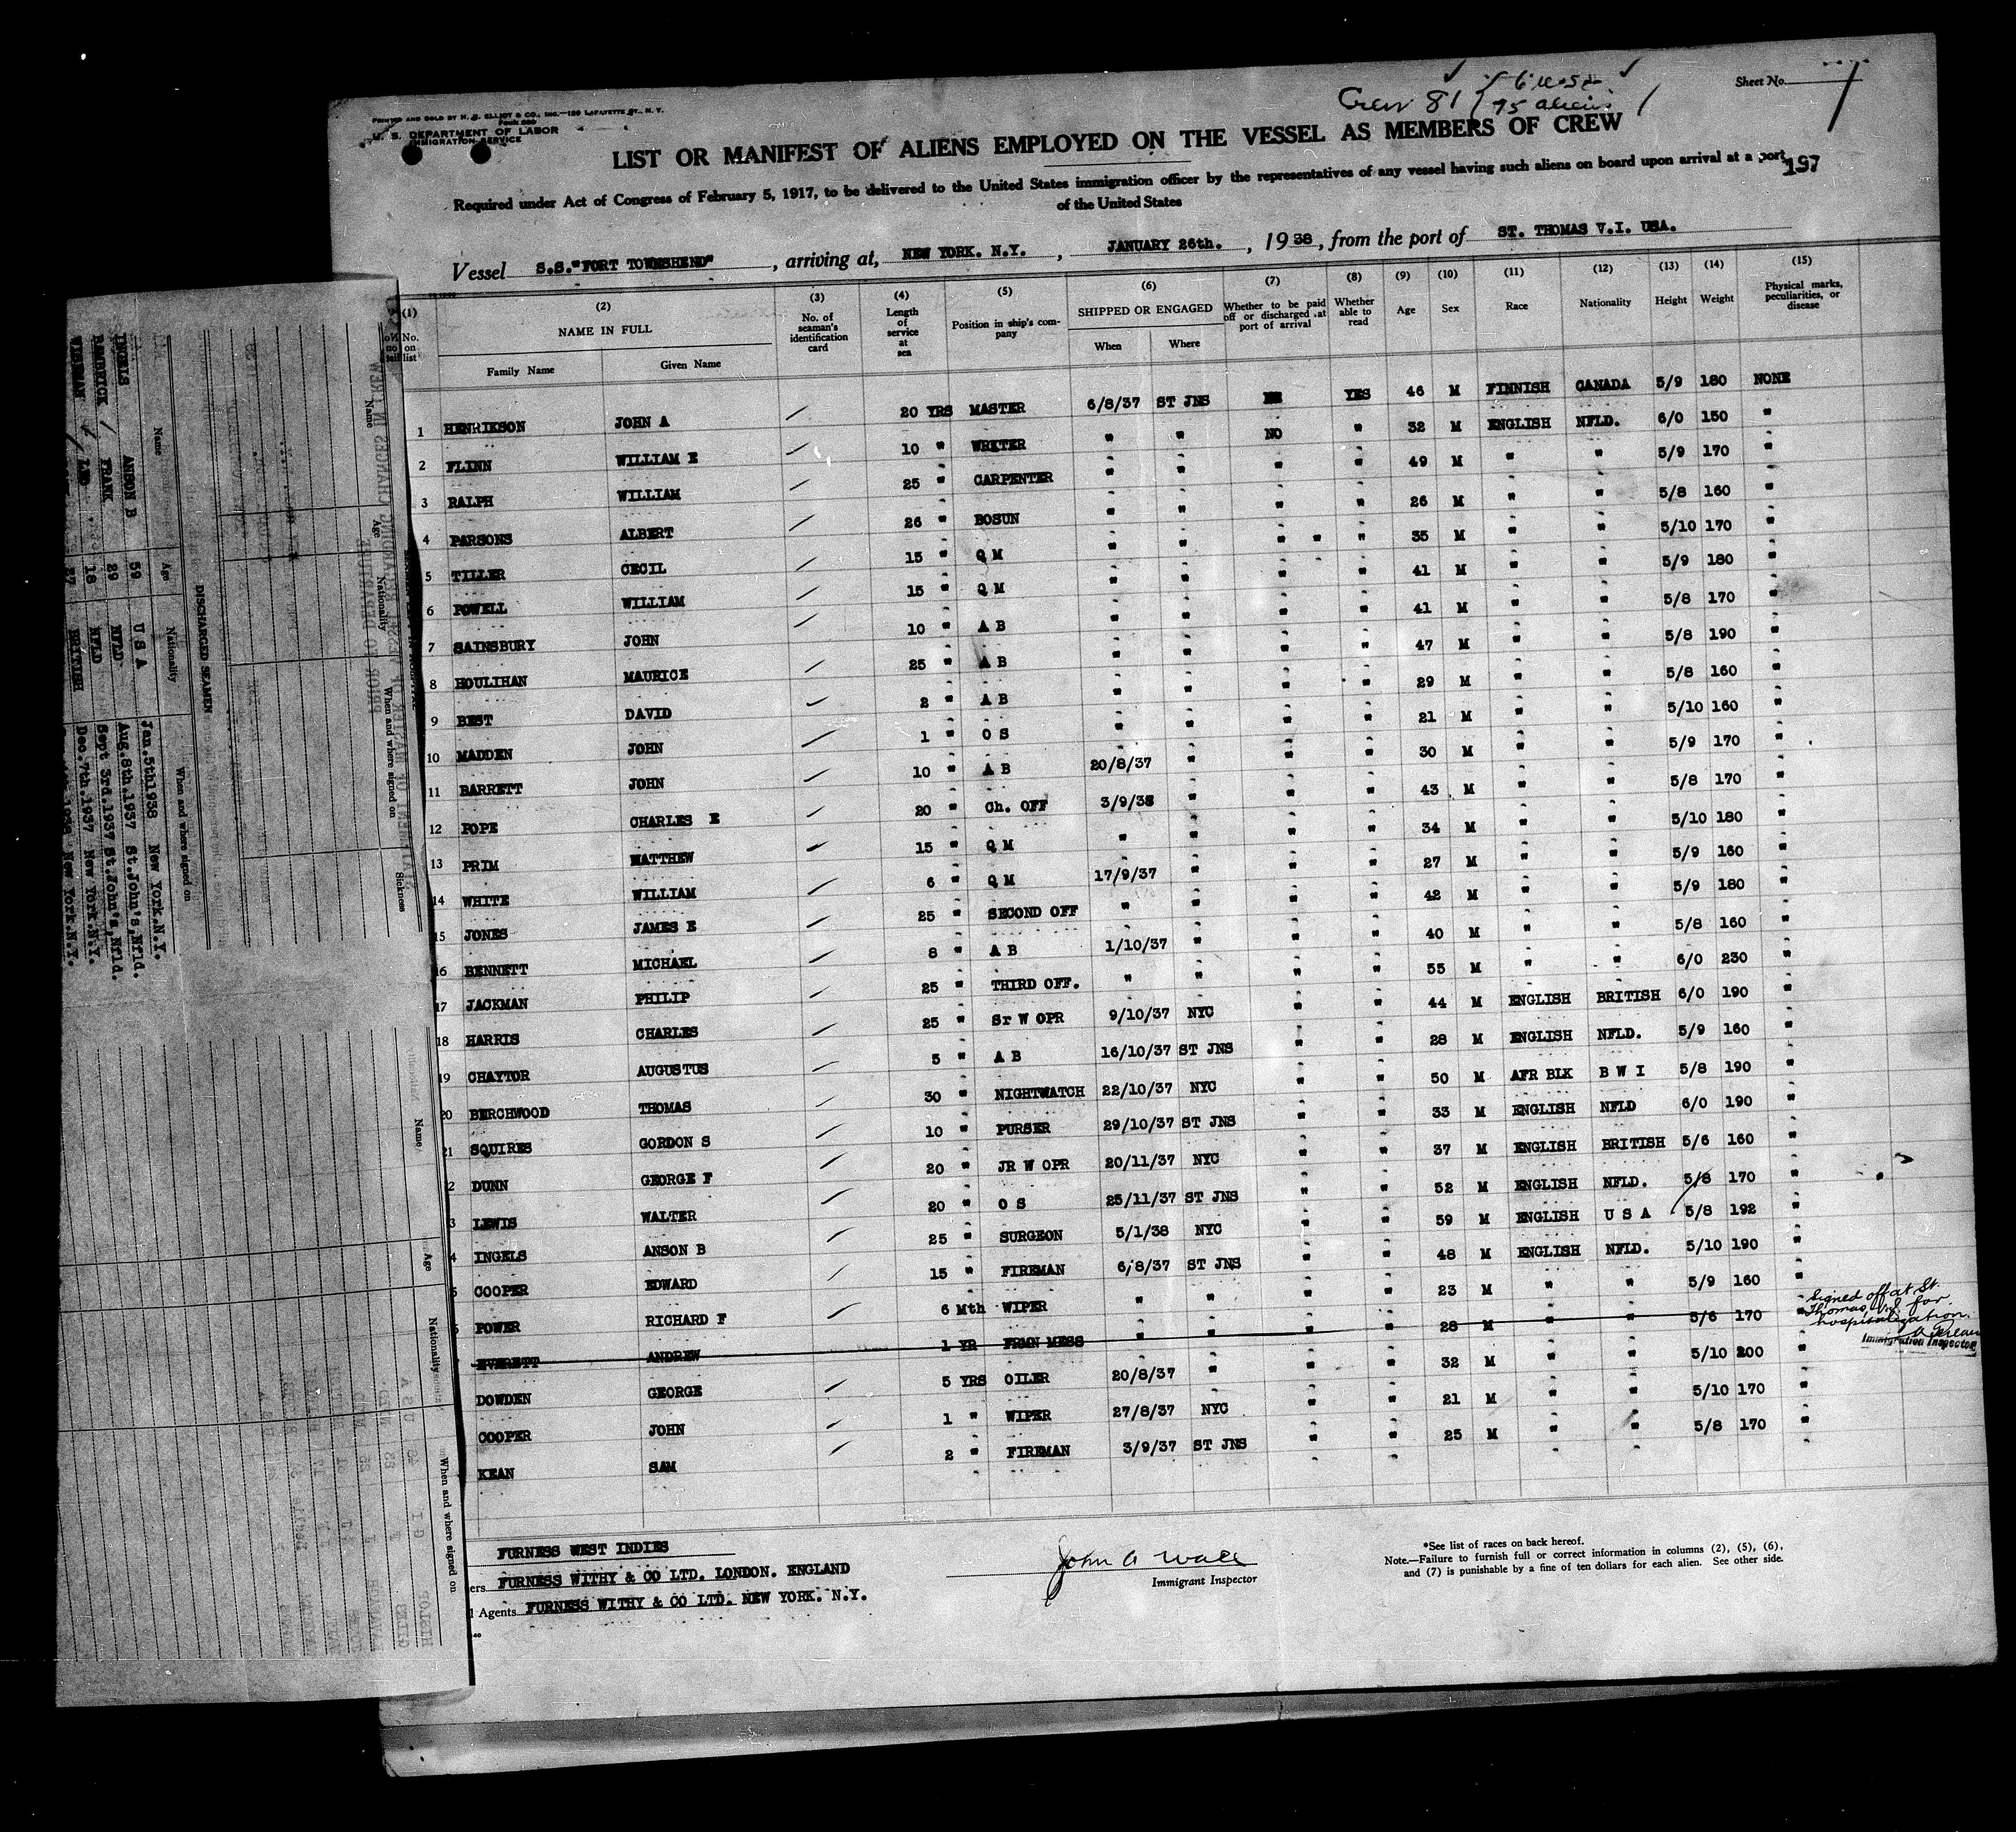 Crew 81
75 aliens
Sheet No. 1
PRINTED AND SOLD BY H. S. ELLIOT & CO., INC.—129 LAFAYETTE ST., N. Y.
U. S. DEPARTMENT OF LABOR
IMMIGRATION SERVICE
LIST OR MANIFEST OF ALIENS EMPLOYED ON THE VESSEL AS MEMBERS OF CREW
197
Required under Act of Congress of February 5, 1917, to be delivered to the United States immigration officer by the representatives of any vessel having such aliens on board upon arrival at a port
of the United States
Vessel S.S."FORT TOWNSHEND", arriving at, NEW YORK. N.Y., JANUARY 26th., 1938, from the port of ST. THOMAS V.I. USA.
(1) (2) (3) (4) (5) (6) (7) (8) (9) (10) (11) (12) (13) (14) (15)
No. on list NAME IN FULL Family Name Given Name No. of seaman's identification card Length of service at sea Position in ship's company SHIPPED OR ENGAGED When Where Whether to be paid off or discharged at port of arrival Whether able to read Age Sex Race Nationality Height Weight Physical marks, peculiarities, or disease
1 HENRIKSON JOHN A 20 YRS MASTER 6/8/37 ST JNS YES 46 M FINNISH CANADA 5/9 180 NONE
2 FLINN WILLIAM E 10 " WRITER " " NO " 32 M ENGLISH NFLD. 6/0 150 "
3 RALPH WILLIAM 25 " CARPENTER " " " " 49 M " " 5/9 170 "
4 PARSONS ALBERT 26 " BOSUN " " " " 26 M " " 5/8 160 "
5 TILLER CECIL 15 " Q M " " " " " 35 M " " 5/10 170 "
6 POWELL WILLIAM 15 " Q M " " " " 41 M " " 5/9 180 "
7 SAINSBURY JOHN 10 " A B " " " " 41 M " " 5/8 170 "
8 HOULIHAN MAURICE 25 " A B " " " " 47 M " " 5/8 190 "
9 BEST DAVID 2 " A B " " " " 29 M " " 5/8 160 "
10 MADDEN JOHN 1 " O S " " " " 21 M " " 5/10 160 "
11 BARRETT JOHN 10 " A B 20/8/37 " " " 30 M " " 5/9 170 "
12 POPE CHARLES E 20 " Ch. OFF 3/9/38 " " " 43 M " " 5/8 170 "
13 PRIM MATTHEW 15 " Q M " " " " 34 M " " 5/10 180 "
14 WHITE WILLIAM 6 " Q M 17/9/37 " " " 27 M " " 5/9 160 "
15 JONES JAMES E 25 " SECOND OFF " " " " 42 M " " 5/9 180 "
16 BENNETT MICHAEL 8 " A B 1/10/37 " " " 40 M " " 5/8 160 "
17 JACKMAN PHILIP 25 " THIRD OFF. " " " " 55 M " " 6/0 230 "
18 HARRIS CHARLES 25 " Sr W OPR 9/10/37 NYC " " 44 M ENGLISH BRITISH 6/0 190 "
19 CHAYTOR AUGUSTUS 5 " A B 16/10/37 ST JNS " " 28 M ENGLISH NFLD. 5/9 160 "
20 BERCHWOOD THOMAS 30 " NIGHTWATCH 22/10/37 NYC " " 50 M AFR BLK B W I 5/8 190 "
21 SQUIRES GORDON S 10 " PURSER 29/10/37 ST JNS " " 33 M ENGLISH NFLD 6/0 190 "
2 DUNN GEORGE F 20 " JR W OPR 20/11/37 NYC " " 37 M ENGLISH BRITISH 5/6 160 "
3 LEWIS WALTER 20 " O S 25/11/37 ST JNS " " 52 M ENGLISH NFLD. 5/8 170 "
4 INGELS ANSON B 25 " SURGEON 5/1/38 NYC " " 59 M ENGLISH U S A 5/8 192 "
5 COOPER EDWARD 15 " FIREMAN 6/8/37 ST JNS " " 48 M ENGLISH NFLD. 5/10 190 "
POWER RICHARD F 6 Mth WIPER " " " " 23 M " " 5/9 160 "
EVERETT ANDREW 1 YR FRMN MESS " " " " 28 M " " 5/6 170 "
Signed off at St.
Thomas V.I. for
hospitalization.
Immigration Inspector
DOWDEN GEORGE 5 YRS OILER 20/8/37 " " " 32 M " " 5/10 200 "
COOPER JOHN 1 " WIPER 27/8/37 NYC " " 21 M " " 5/10 170 "
KEAN SAM 2 " FIREMAN 3/9/37 ST JNS " " 25 M " " 5/8 170 "
FURNESS WEST INDIES
ers FURNESS WITHY & CO LTD. LONDON. ENGLAND
l Agents FURNESS WITHY & CO LTD. NEW YORK. N.Y.
John A Wall
Immigrant Inspector
*See list of races on back hereof.
Note.—Failure to furnish full or correct information in columns (2), (5), (6),
and (7) is punishable by a fine of ten dollars for each alien. See other side.
Name Age Nationality When and where signed on Sickness
DISCHARGED SEAMEN
Name Age Nationality When and where signed on
INGELS ANSON B 59 U S A Jan.5th1938 New York.N.Y.
FRANK 29 NFLD Aug.8th.1937 St.John's,Nfld.
18 NFLD Sept 3rd.1937 St.John's,Nfld.
BRITISH Dec.7th.1937 New York.N.Y.
New York.N.Y.
Name Age Nationality When and where signed on